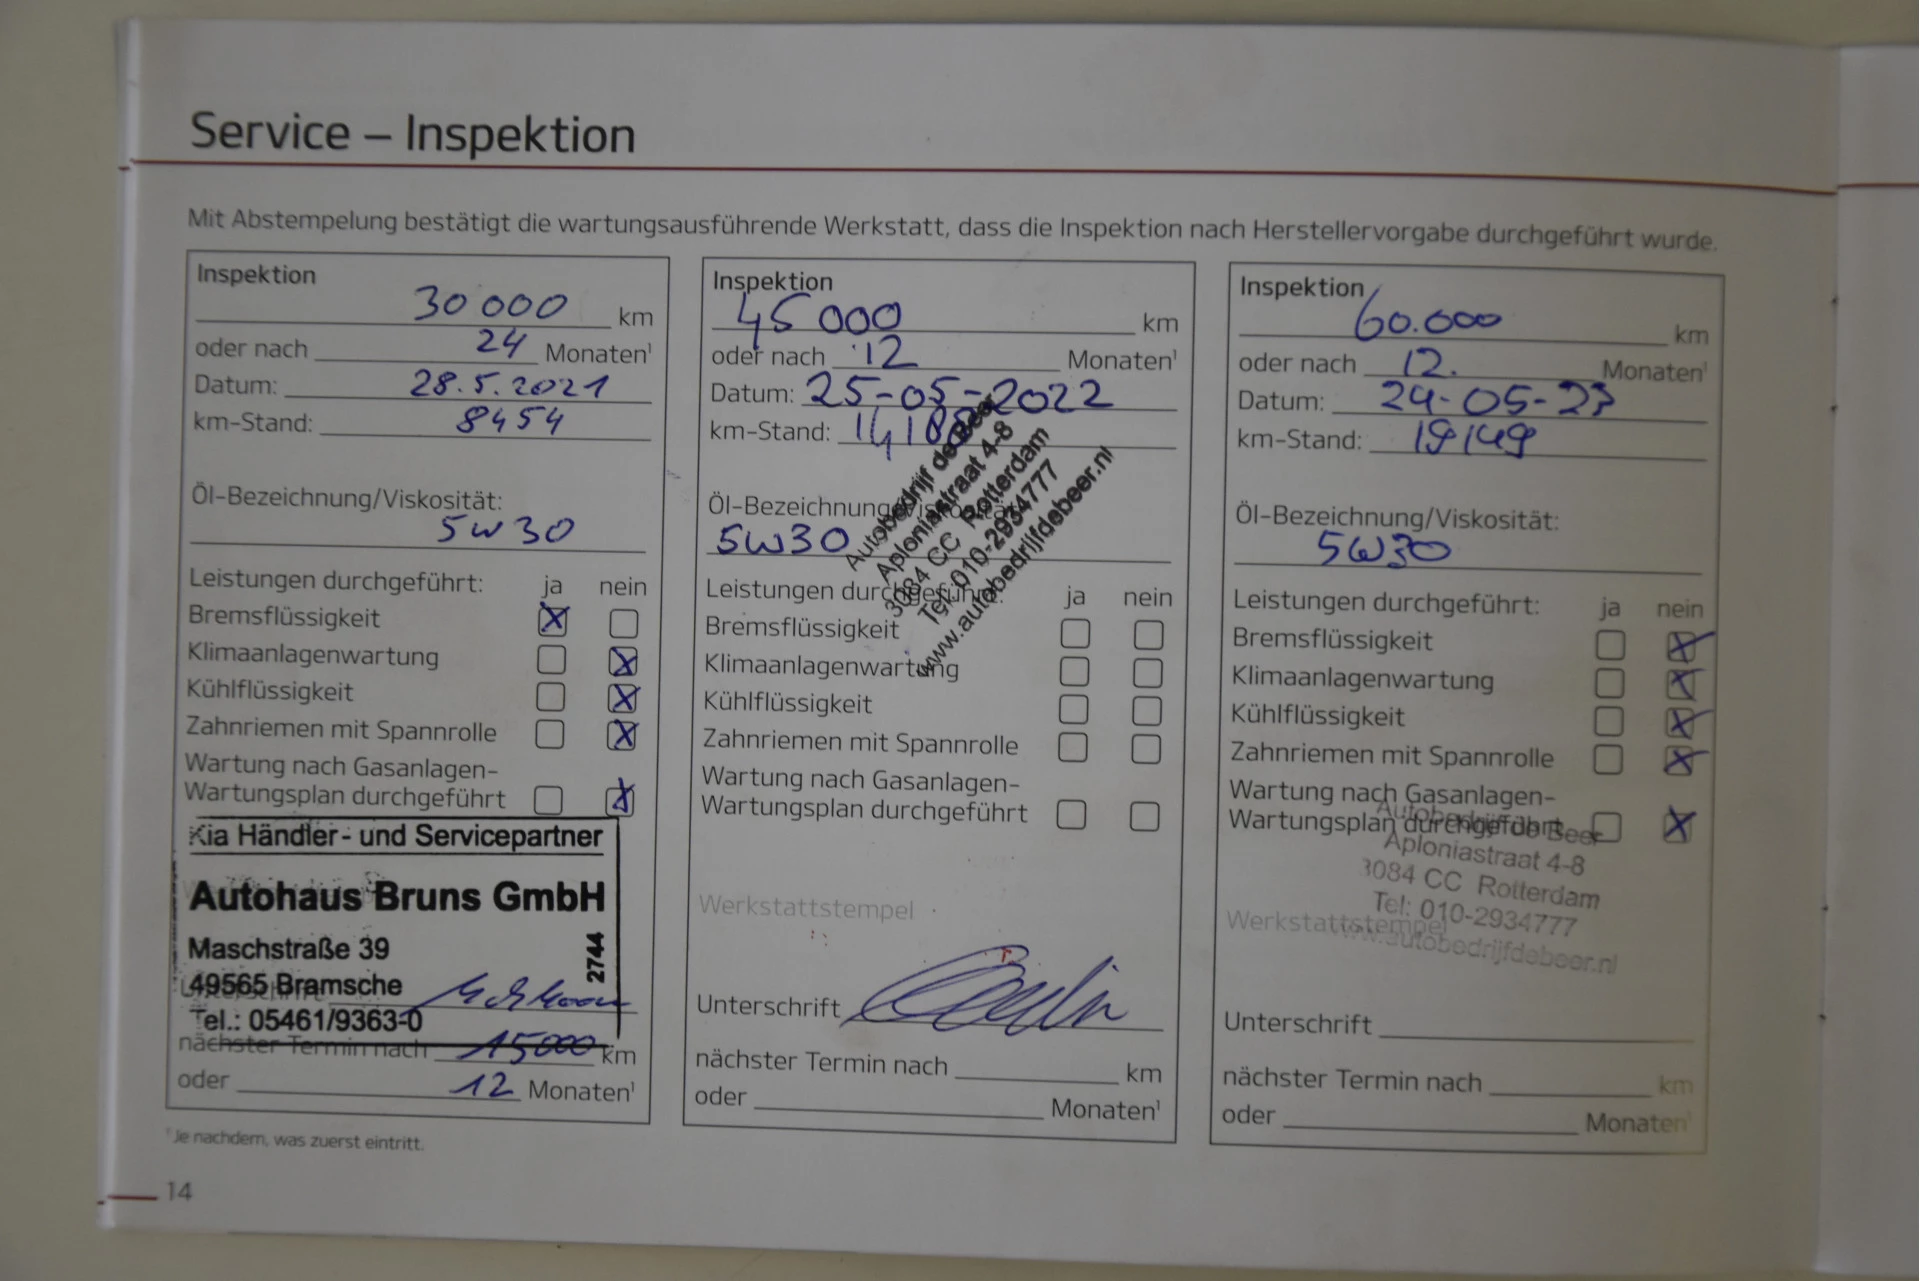 Service – Inspektion
Mit Abstempelung bestätigt die wartungsausführende Werkstatt, dass die Inspektion nach Herstellervorgabe durchgeführt wurde.
Inspektion
30 000 km
oder nach 24 Monaten¹
Datum: 28.5.2021
km-Stand: 8454
Öl-Bezeichnung/Viskosität:
5W30
Leistungen durchgeführt: ja nein
Bremsflüssigkeit X
Klimaanlagenwartung X
Kühlflüssigkeit X
Zahnriemen mit Spannrolle X
Wartung nach Gasanlagen-
Wartungsplan durchgeführt X
Kia Händler- und Servicepartner
Autohaus Bruns GmbH
Maschstraße 39
49565 Bramsche
Tel.: 05461/9363-0
2744
nächster Termin nach 15000 km
oder 12 Monaten¹
Inspektion
45 000 km
oder nach 12 Monaten¹
Datum: 25-05-2022
km-Stand:
Öl-Bezeichnung/Viskosität:
5W30
Autobedrijf de Beer
Aploniastraat 4-8
3084 CC Rotterdam
Tel: 010-2934777
www.autobedrijfdebeer.nl
Leistungen durchgeführt: ja nein
Bremsflüssigkeit
Klimaanlagenwartung
Kühlflüssigkeit
Zahnriemen mit Spannrolle
Wartung nach Gasanlagen-
Wartungsplan durchgeführt
Werkstattstempel
Unterschrift
nächster Termin nach km
oder Monaten¹
Inspektion
60.000 km
oder nach 12. Monaten¹
Datum: 24-05-23
km-Stand: 19149
Öl-Bezeichnung/Viskosität:
5W30
Leistungen durchgeführt: ja nein
Bremsflüssigkeit X
Klimaanlagenwartung X
Kühlflüssigkeit X
Zahnriemen mit Spannrolle X
Wartung nach Gasanlagen-
Wartungsplan durchgeführt X
Autobedrijf de Beer
Aploniastraat 4-8
3084 CC Rotterdam
Tel: 010-2934777
www.autobedrijfdebeer.nl
Werkstattstempel
Unterschrift
nächster Termin nach km
oder Monaten¹
¹Je nachdem, was zuerst eintritt.
14